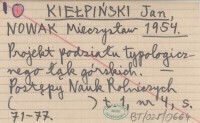 KIEŁPIŃSKI Jan,
NOWAK Mieczysław 1954.
Projekt podziału typologicz-
nego łąk górskich. —
Postępy Nauk Rolniczych
( ) t. 1, nr 4, s.
71-77.